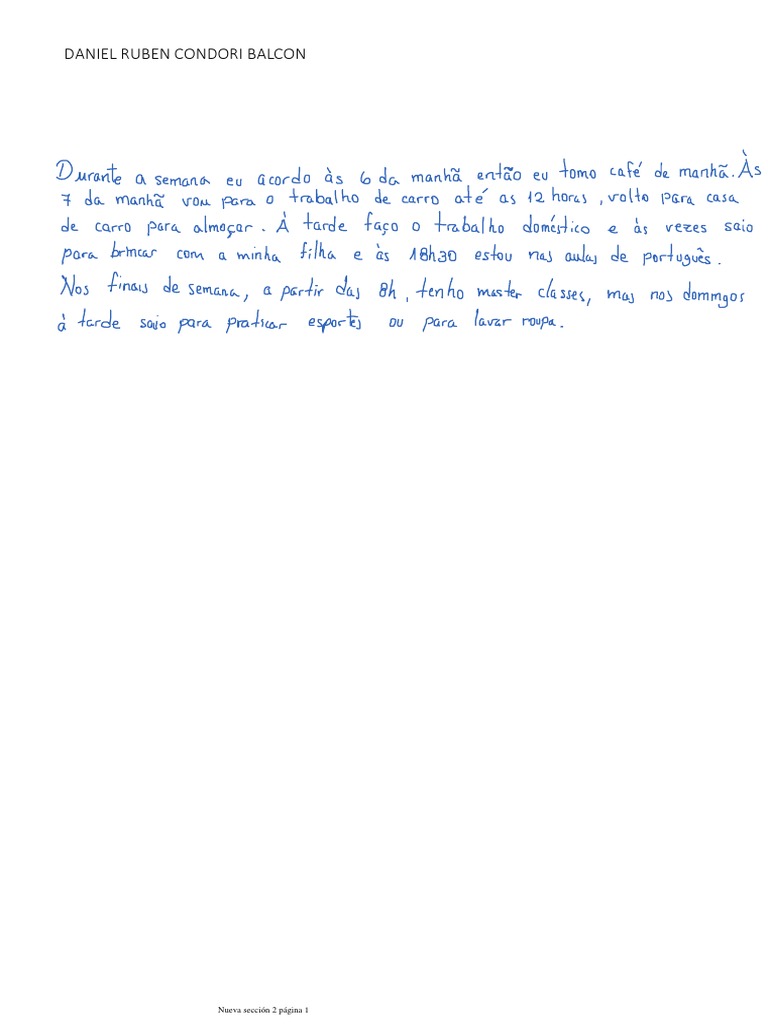 DANIEL RUBEN CONDORI BALCON
Durante a semana eu acordo às 6 da manhã então eu tomo café de manhã. Às
7 da manhã vou para o trabalho de carro até as 12 horas, volto para casa
de carro para almoçar. À tarde faço o trabalho doméstico e às vezes saio
para brincar com a minha filha e às 18h30 estou nas aulas de português.
Nos finais de semana, a partir das 8h, tenho master classes, mas nos domingos
à tarde saio para praticar esportes ou para lavar roupa.
Nueva sección 2 página 1